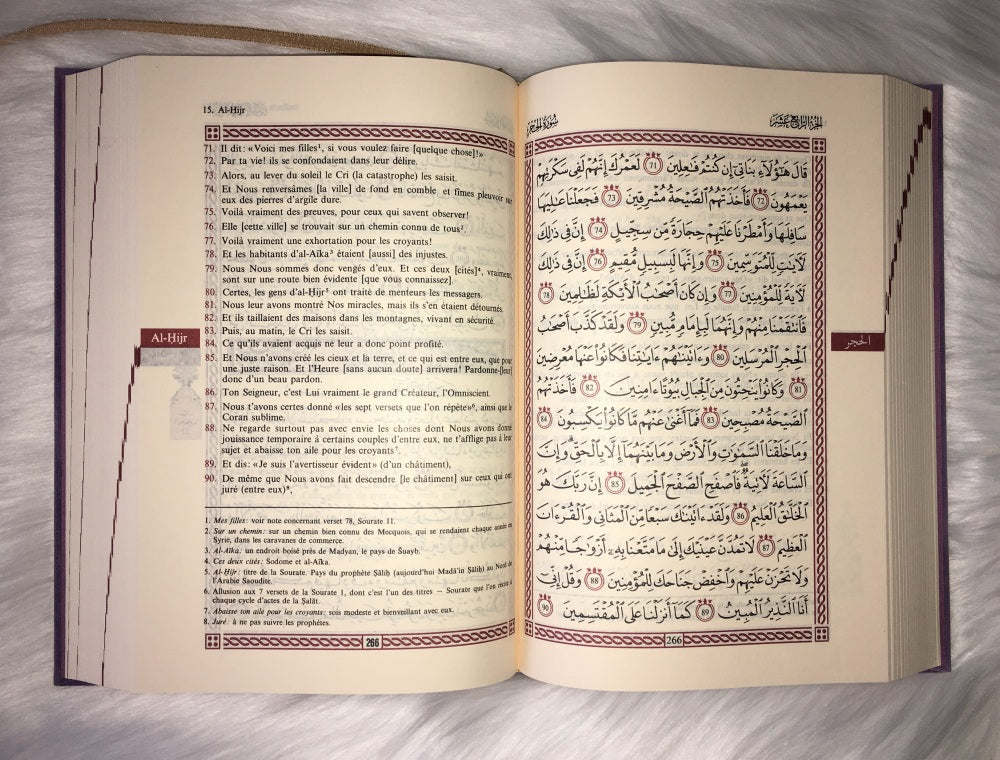 15. Al-Hijr
71. Il dit: «Voici mes filles¹, si vous voulez faire [quelque chose]!»
72. Par ta vie! ils se confondaient dans leur délire.
73. Alors, au lever du soleil le Cri (la catastrophe) les saisit.
74. Et Nous renversâmes [la ville] de fond en comble et fîmes pleuvoir sur
eux des pierres d'argile dure.
75. Voilà vraiment des preuves, pour ceux qui savent observer!
76. Elle [cette ville] se trouvait sur un chemin connu de tous².
77. Voilà vraiment une exhortation pour les croyants!
78. Et les habitants d'al-Aïka³ étaient [aussi] des injustes.
79. Nous Nous sommes donc vengés d'eux. Et ces deux [cités]⁴, vraiment,
sont sur une route bien évidente [que vous connaissez].
80. Certes, les gens d'al-Ḥijr⁵ ont traité de menteurs les messagers.
81. Nous leur avons montré Nos miracles, mais ils s'en étaient détournés.
82. Et ils taillaient des maisons dans les montagnes, vivant en sécurité.
83. Puis, au matin, le Cri les saisit.
84. Ce qu'ils avaient acquis ne leur a donc point profité.
85. Et Nous n'avons créé les cieux et la terre, et ce qui est entre eux, que pour
une juste raison. Et l'Heure [sans aucun doute] arrivera! Pardonne-[leur]
donc d'un beau pardon.
86. Ton Seigneur, c'est Lui vraiment le grand Créateur, l'Omniscient.
87. Nous t'avons certes donné «les sept versets que l'on répète»⁶, ainsi que le
Coran sublime.
88. Ne regarde surtout pas avec envie les choses dont Nous avons donné
jouissance temporaire à certains couples d'entre eux, ne t'afflige pas à leur
sujet et abaisse ton aile pour les croyants⁷.
89. Et dis: «Je suis l'avertisseur évident» (d'un châtiment),
90. De même que Nous avons fait descendre [le châtiment] sur ceux qui ont
juré (entre eux)⁸,
1. Mes filles: voir note concernant verset 78, Sourate 11.
2. Sur un chemin: sur un chemin bien connu des Mecquois, qui se rendaient chaque année en
Syrie, dans les caravanes de commerce.
3. Al-Aïka: un endroit boisé près de Madyan, le pays de Šuayb.
4. Ces deux cités: Sodome et al-Aïka.
5. Al-Ḥijr: titre de la Sourate. Pays du prophète Ṣāliḥ (aujourd'hui Madā'in Ṣāliḥ) au Nord de
l'Arabie Saoudite.
6. Allusion aux 7 versets de la Sourate 1, dont c'est l'un des titres — Sourate que l'on récite à
chaque cycle d'actes de la Ṣalāt.
7. Abaisse ton aile pour les croyants: sois modeste et bienveillant avec eux.
8. Juré: à ne pas suivre les prophètes.
266
Al-Ḥijr
الجزء الرابع عشر
سورة الحجر
قَالَ هَٰٓؤُلَآءِ بَنَاتِىٓ إِن كُنتُمْ فَٰعِلِينَ ٧١ لَعَمْرُكَ إِنَّهُمْ لَفِى سَكْرَتِهِمْ
يَعْمَهُونَ ٧٢ فَأَخَذَتْهُمُ ٱلصَّيْحَةُ مُشْرِقِينَ ٧٣ فَجَعَلْنَا عَٰلِيَهَا
سَافِلَهَا وَأَمْطَرْنَا عَلَيْهِمْ حِجَارَةً مِّن سِجِّيلٍ ٧٤ إِنَّ فِى ذَٰلِكَ
لَءَايَٰتٍ لِّلْمُتَوَسِّمِينَ ٧٥ وَإِنَّهَا لَبِسَبِيلٍ مُّقِيمٍ ٧٦ إِنَّ فِى ذَٰلِكَ
لَءَايَةً لِّلْمُؤْمِنِينَ ٧٧ وَإِن كَانَ أَصْحَٰبُ ٱلْأَيْكَةِ لَظَٰلِمِينَ ٧٨
فَٱنتَقَمْنَا مِنْهُمْ وَإِنَّهُمَا لَبِإِمَامٍ مُّبِينٍ ٧٩ وَلَقَدْ كَذَّبَ أَصْحَٰبُ
ٱلْحِجْرِ ٱلْمُرْسَلِينَ ٨٠ وَءَاتَيْنَٰهُمْ ءَايَٰتِنَا فَكَانُوا۟ عَنْهَا مُعْرِضِينَ
٨١ وَكَانُوا۟ يَنْحِتُونَ مِنَ ٱلْجِبَالِ بُيُوتًا ءَامِنِينَ ٨٢ فَأَخَذَتْهُمُ
ٱلصَّيْحَةُ مُصْبِحِينَ ٨٣ فَمَآ أَغْنَىٰ عَنْهُم مَّا كَانُوا۟ يَكْسِبُونَ ٨٤
وَمَا خَلَقْنَا ٱلسَّمَٰوَٰتِ وَٱلْأَرْضَ وَمَا بَيْنَهُمَآ إِلَّا بِٱلْحَقِّ وَإِنَّ
ٱلسَّاعَةَ لَءَاتِيَةٌ فَٱصْفَحِ ٱلصَّفْحَ ٱلْجَمِيلَ ٨٥ إِنَّ رَبَّكَ هُوَ
ٱلْخَلَّٰقُ ٱلْعَلِيمُ ٨٦ وَلَقَدْ ءَاتَيْنَٰكَ سَبْعًا مِّنَ ٱلْمَثَانِى وَٱلْقُرْءَانَ
ٱلْعَظِيمَ ٨٧ لَا تَمُدَّنَّ عَيْنَيْكَ إِلَىٰ مَا مَتَّعْنَا بِهِۦٓ أَزْوَٰجًا مِّنْهُمْ
وَلَا تَحْزَنْ عَلَيْهِمْ وَٱخْفِضْ جَنَاحَكَ لِلْمُؤْمِنِينَ ٨٨ وَقُلْ إِنِّىٓ
أَنَا ٱلنَّذِيرُ ٱلْمُبِينُ ٨٩ كَمَآ أَنزَلْنَا عَلَى ٱلْمُقْتَسِمِينَ ٩٠
266
الحجر